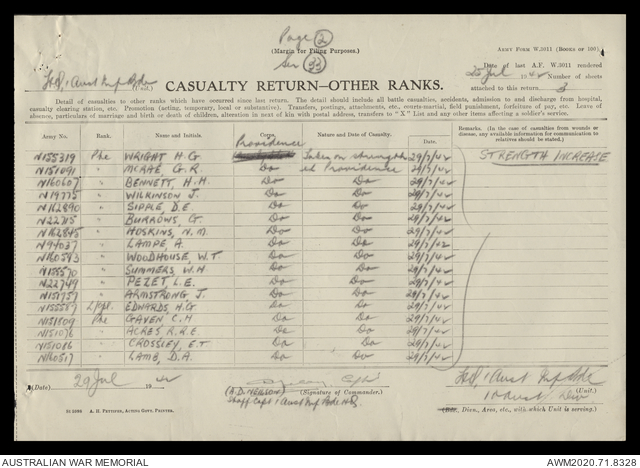 Page 2
(Margin for Filing Purposes.)
Ser 33
ARMY FORM W.3011 (BOOKS OF 100).
Date of last A.F. W.3011 rendered
25 Jul 1942 Number of sheets
attached to this return 3
HQ 1 Aust Inf Bde (Unit.)
CASUALTY RETURN—OTHER RANKS.
Detail of casualties to other ranks which have occurred since last return. The detail should include all battle casualties, accidents, admission to and discharge from hospital,
casualty clearing station, etc. Promotion (acting, temporary, local or substantive). Transfers, postings, attachments, etc., courts-martial, field punishment, forfeiture of pay, etc. Leave of
absence, particulars of marriage and birth or death of children, alteration in next of kin with postal address, transfers to "X" List and any other items affecting a soldier's service.
Army No. Rank. Name and Initials. Corps. Nature and Date of Casualty. Date. Remarks. (In the case of casualties from wounds or disease, any available information for communication to relatives should be stated.)
Providence
N155319 Pte WRIGHT H.G. Taken on strength 29/7/42 STRENGTH INCREASE
N151091 " McRAE G.R. Do ed Providence 29/7/42
N160607 " BENNETT, H.H. Do Do 29/7/42
N19775 " WILKINSON J. Do Do 29/7/42
N162890 " SIPPLE D.E. Do Do 29/7/42
N22715 " BURROWS G. Do Do 29/7/42
N162845 " HOSKINS, N.M. Do Do 29/7/42
N94037 " LAMPE A. Do Do 29/7/42
N80593 " WOODHOUSE, W.T Do Do 29/7/42
N155570 " SUMMERS, W.H Do Do 29/7/42
N22749 " PEZET L.E. Do Do 29/7/42
N151757 " ARMSTRONG J. Do Do 29/7/42
N155587 L/Cpl. EDWARDS H.G. Do Do 29/7/42
N151809 Pte GAVEN C.H Do Do 29/7/42
N151076 " ACRES R.R.E. Do Do 29/7/42
N151086 " CROSSLEY E.T Do Do 29/7/42
N160517 " LAMB D.A. Do Do 29/7/42
(Date) 29 Jul 1942
Capt
(A.D. NEILSON) (Signature of Commander.)
Staff Capt 1 Aust Inf Bde HQ
HQ 1 Aust Inf Bde (Unit.)
1 Aust Div
(Bde., Divn., Area, etc., with which Unit is serving.)
A. H. PETTIFER, ACTING GOVT. PRINTER.
AUSTRALIAN WAR MEMORIAL
AWM2020.71.8328